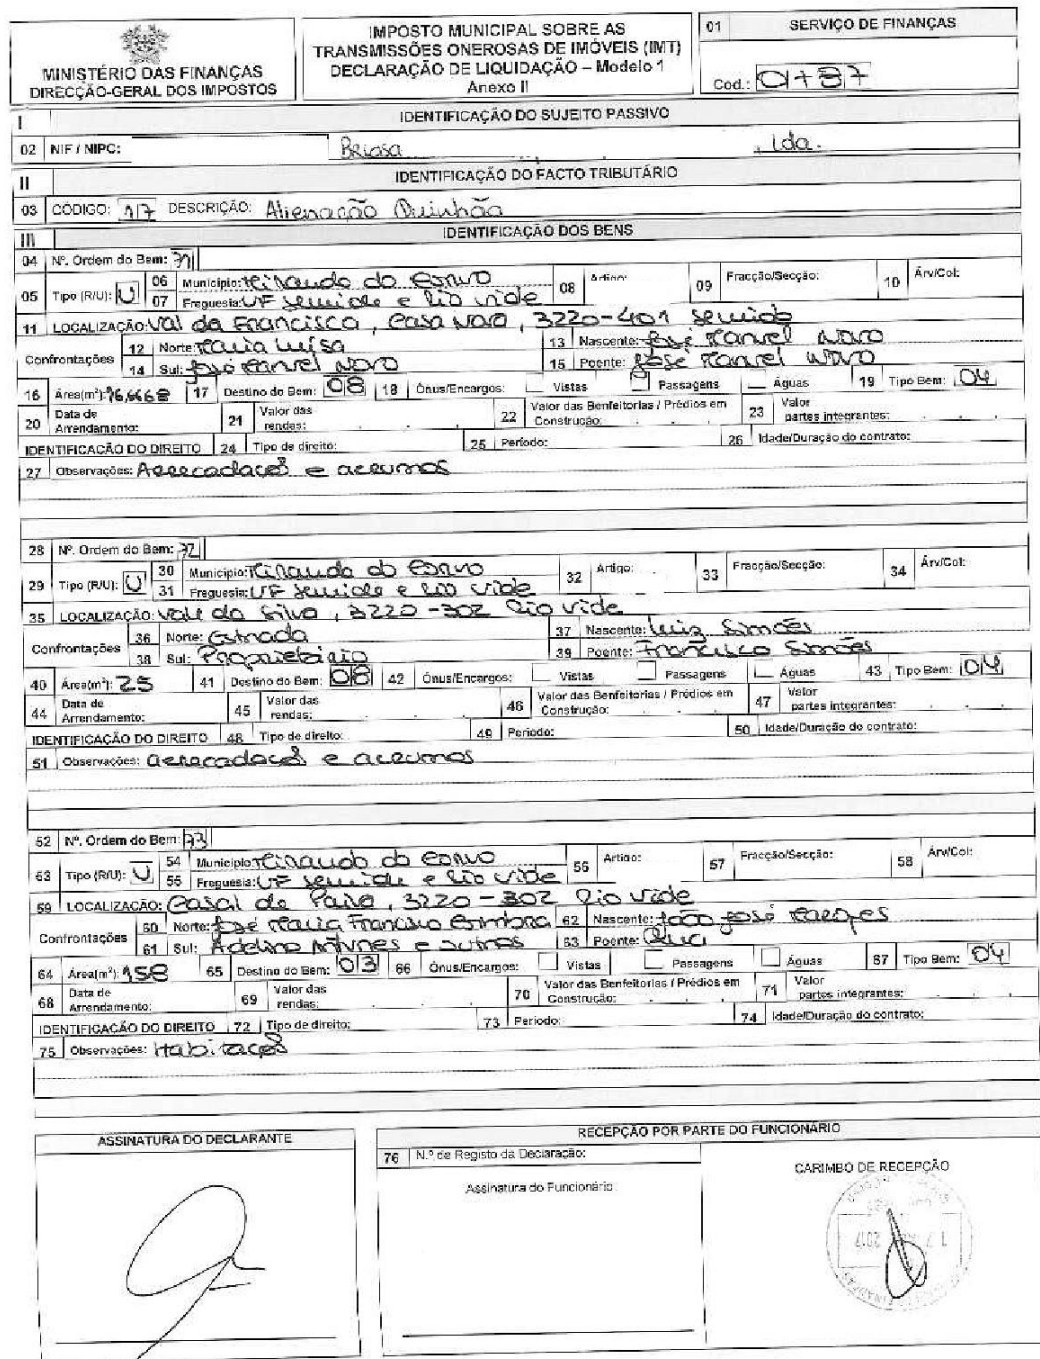 MINISTÉRIO DAS FINANÇAS
DIRECÇÃO-GERAL DOS IMPOSTOS
IMPOSTO MUNICIPAL SOBRE AS
TRANSMISSÕES ONEROSAS DE IMÓVEIS (IMT)
DECLARAÇÃO DE LIQUIDAÇÃO – Modelo 1
Anexo II
01 SERVIÇO DE FINANÇAS
Cod.:
I IDENTIFICAÇÃO DO SUJEITO PASSIVO
02 NIF / NIPC: Briosa , Lda.
II IDENTIFICAÇÃO DO FACTO TRIBUTÁRIO
03 CÓDIGO: 17 DESCRIÇÃO: Alienação Quinhão
III IDENTIFICAÇÃO DOS BENS
04 Nº. Ordem do Bem: 71
05 Tipo (R/U): U 06 Municipio: Miranda do Corvo 08 Artigo: 09 Fracção/Secção: 10 Árv/Col:
07 Freguesia: UF Semide e Rio Vide
11 LOCALIZAÇÃO: Val da Francisca, Casa Nova, 3220-401 Semide
Confrontações 12 Norte: Maria Luisa 13 Nascente: José Manuel Novo
14 Sul: José Manuel Novo 15 Poente: José Manuel Novo
16 Área(m²): 17 Destino do Bem: 08 18 Ónus/Encargos: Vistas Passagens Águas 19 Tipo Bem: 04
20 Data de Arrendamento: 21 Valor das rendas: 22 Valor das Benfeitorias / Prédios em Construção: 23 Valor partes integrantes:
IDENTIFICAÇÃO DO DIREITO 24 Tipo de direito: 25 Período: 26 Idade/Duração do contrato:
27 Observações: Arrecadações e arrumos
28 Nº. Ordem do Bem: 72
29 Tipo (R/U): U 30 Municipio: Miranda do Corvo 32 Artigo: 33 Fracção/Secção: 34 Árv/Col:
31 Freguesia: UF Semide e Rio Vide
35 LOCALIZAÇÃO: Vale da Silva, 3220-302 Rio Vide
Confrontações 36 Norte: Estrada 37 Nascente: Luis Simões
38 Sul: Proprietário 39 Poente: Francisco Simões
40 Área(m²): 25 41 Destino do Bem: 08 42 Ónus/Encargos: Vistas Passagens Águas 43 Tipo Bem: 04
44 Data de Arrendamento: 45 Valor das rendas: 46 Valor das Benfeitorias / Prédios em Construção: 47 Valor partes integrantes:
IDENTIFICAÇÃO DO DIREITO 48 Tipo de direito: 49 Período: 50 Idade/Duração do contrato:
51 Observações: arrecadações e arrumos
52 Nº. Ordem do Bem: 73
53 Tipo (R/U): U 54 Municipio: Miranda do Corvo 56 Artigo: 57 Fracção/Secção: 58 Árv/Col:
55 Freguesia: UF Semide e Rio Vide
59 LOCALIZAÇÃO: Casal de Paiva, 3220-302 Rio Vide
Confrontações 60 Norte: José Maria Francisco Coimbra 62 Nascente: João José Marques
61 Sul: Adelino Antunes e outros 63 Poente: Rua
64 Área(m²): 158 65 Destino do Bem: 03 66 Ónus/Encargos: Vistas Passagens Águas 67 Tipo Bem: 04
68 Data de Arrendamento: 69 Valor das rendas: 70 Valor das Benfeitorias / Prédios em Construção: 71 Valor partes integrantes:
IDENTIFICAÇÃO DO DIREITO 72 Tipo de direito: 73 Período: 74 Idade/Duração do contrato:
75 Observações: Habitação
ASSINATURA DO DECLARANTE
RECEPÇÃO POR PARTE DO FUNCIONÁRIO
76 N.º de Registo da Declaração:
Assinatura do Funcionário:
CARIMBO DE RECEPÇÃO